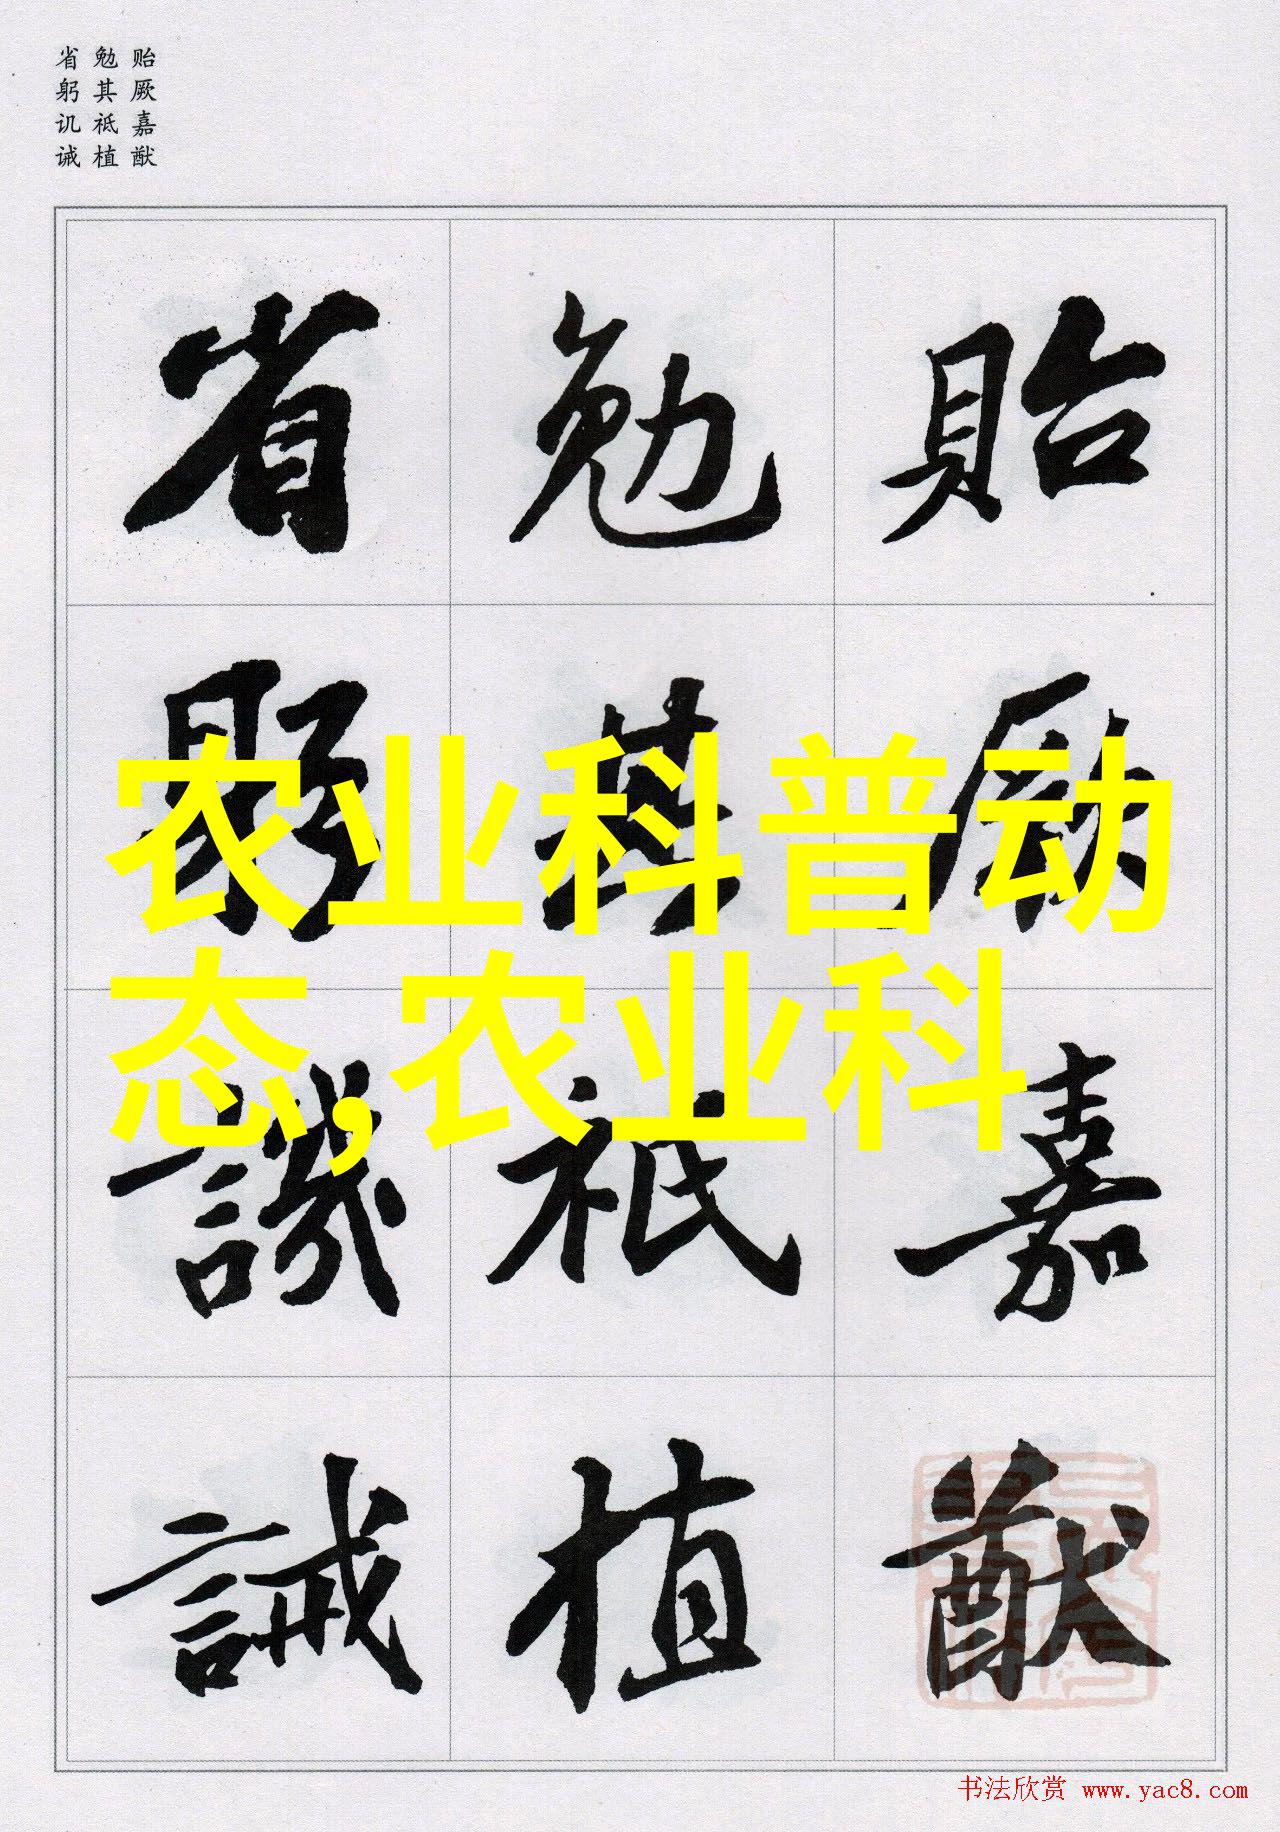 贻厥嘉猷
勉其祗植
省躬讥诫
貽厥嘉猷
勉其祗植
省躬譏誡
农业科普动
态,农业科
书法欣赏 www.yac8.com